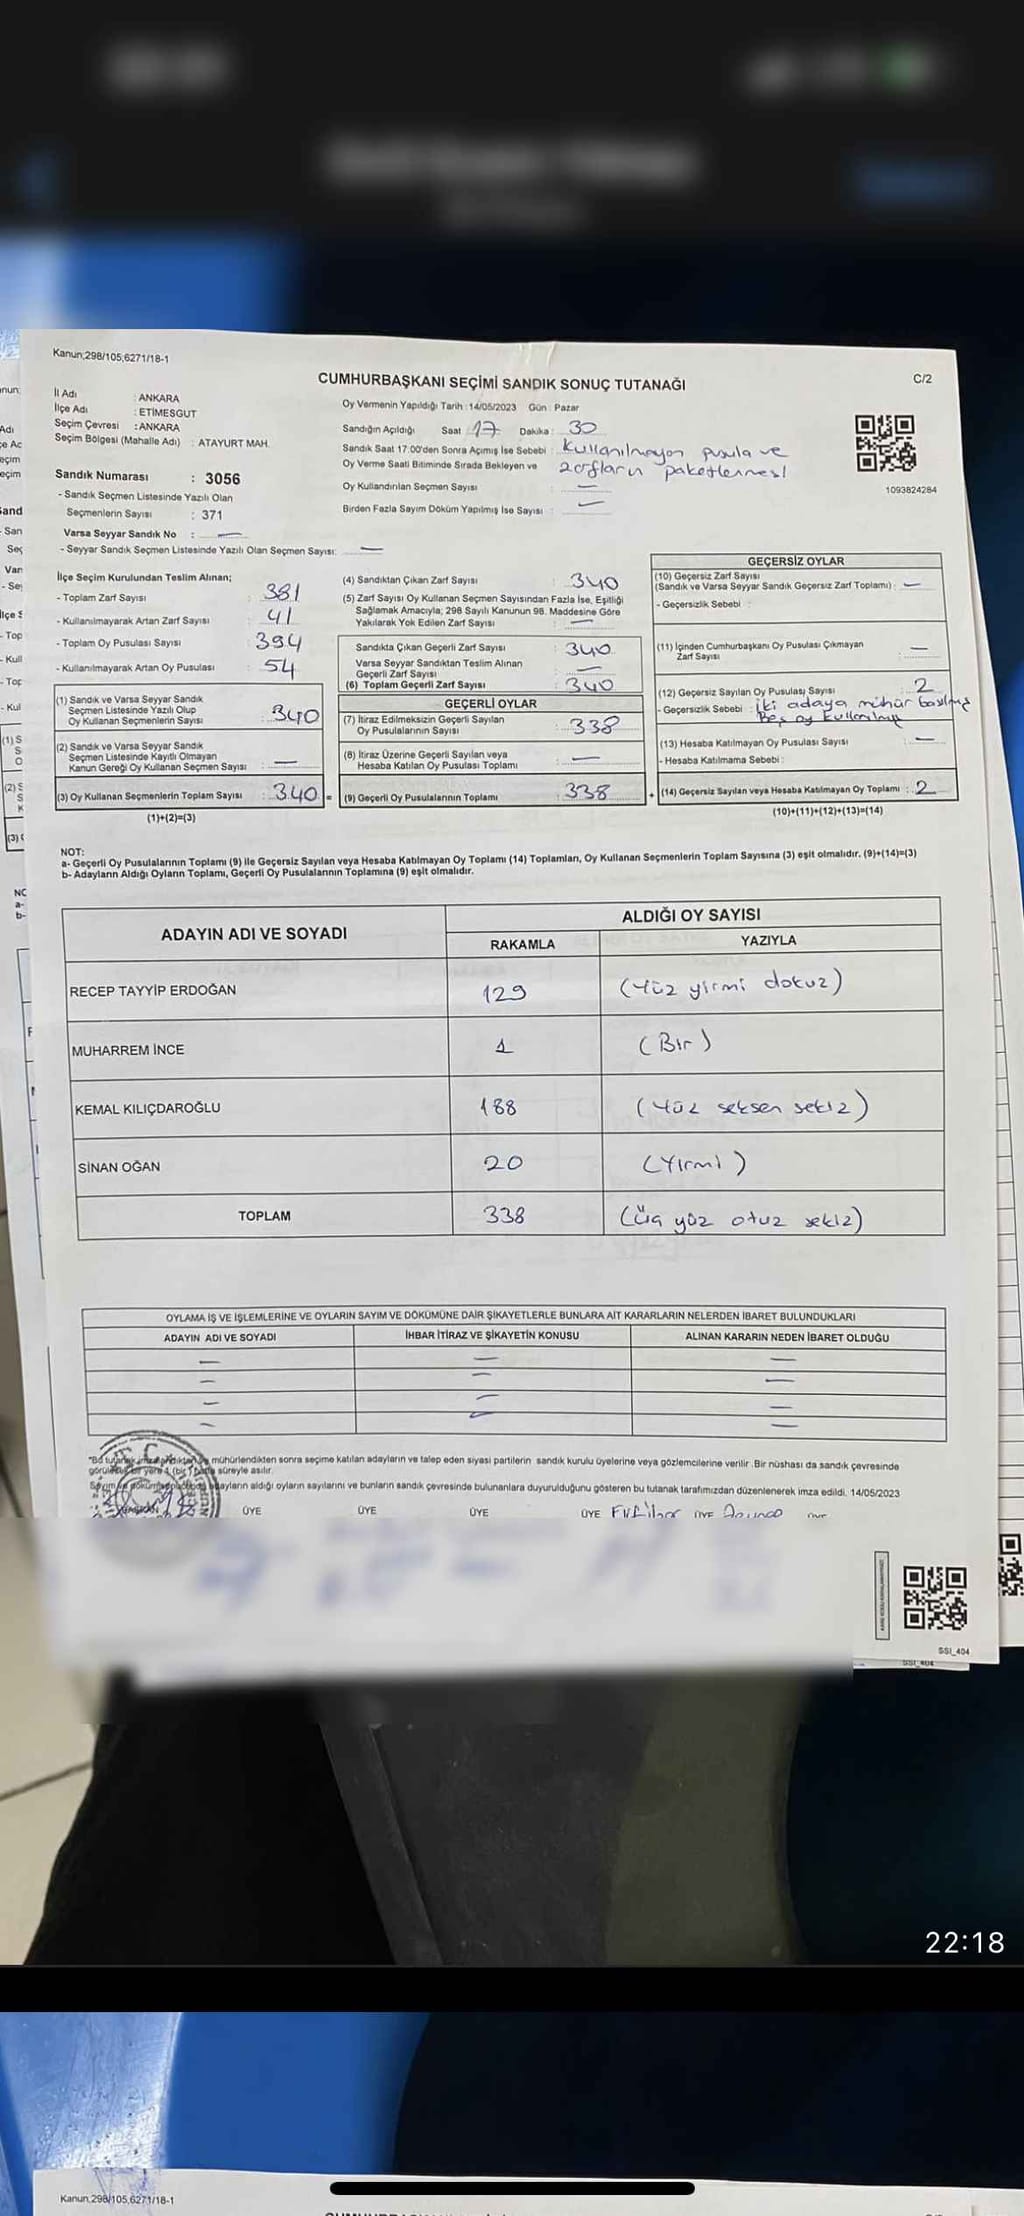 Kanun;298/105,6271/18-1
C/2
CUMHURBAŞKANI SEÇİMİ SANDIK SONUÇ TUTANAĞI
İl Adı : ANKARA
İlçe Adı : ETİMESGUT
Seçim Çevresi : ANKARA
Seçim Bölgesi (Mahalle Adı) : ATAYURT MAH.
Sandık Numarası : 3056
- Sandık Seçmen Listesinde Yazılı Olan
Seçmenlerin Sayısı : 371
Varsa Seyyar Sandık No : —
- Seyyar Sandık Seçmen Listesinde Yazılı Olan Seçmen Sayısı: —
Oy Vermenin Yapıldığı Tarih :14/05/2023 Gün : Pazar
Sandığın Açıldığı Saat 17 Dakika : 30
Sandık Saat 17:00'den Sonra Açımış İse Sebebi : Kullanılmayan pusula ve
Oy Verme Saati Bitiminde Sırada Bekleyen ve zarfların paketlenmesi
Oy Kullandırılan Seçmen Sayısı : —
Birden Fazla Sayım Döküm Yapılmış İse Sayısı : —
1093824284
İlçe Seçim Kurulundan Teslim Alınan;
- Toplam Zarf Sayısı : 381
- Kullanılmayarak Artan Zarf Sayısı : 41
- Toplam Oy Pusulası Sayısı : 394
- Kullanılmayarak Artan Oy Pusulası : 54
(1) Sandık ve Varsa Seyyar Sandık
Seçmen Listesinde Yazılı Olup
Oy Kullanan Seçmenlerin Sayısı : 340
(2) Sandık ve Varsa Seyyar Sandık
Seçmen Listesinde Kayıtlı Olmayan
Kanun Gereği Oy Kullanan Seçmen Sayısı : —
(3) Oy Kullanan Seçmenlerin Toplam Sayısı : 340 =
(1)+(2)=(3)
(4) Sandıktan Çıkan Zarf Sayısı : 340
(5) Zarf Sayısı Oy Kullanan Seçmen Sayısından Fazla İse, Eşitliği
Sağlamak Amacıyla; 298 Sayılı Kanunun 98. Maddesine Göre
Yakılarak Yok Edilen Zarf Sayısı : —
Sandıkta Çıkan Geçerli Zarf Sayısı : 340
Varsa Seyyar Sandıktan Teslim Alınan
Geçerli Zarf Sayısı : —
(6) Toplam Geçerli Zarf Sayısı : 340
GEÇERLİ OYLAR
(7) İtiraz Edilmeksizin Geçerli Sayılan
Oy Pusulalarının Sayısı : 338
(8) İtiraz Üzerine Geçerli Sayılan veya
Hesaba Katılan Oy Pusulası Toplamı : —
(9) Geçerli Oy Pusulalarının Toplamı : 338 +
GEÇERSİZ OYLAR
(10) Geçersiz Zarf Sayısı
(Sandık ve Varsa Seyyar Sandık Geçersiz Zarf Toplamı) : —
- Geçersizlik Sebebi :
(11) İçinden Cumhurbaşkanı Oy Pusulası Çıkmayan
Zarf Sayısı : —
(12) Geçersiz Sayılan Oy Pusulası Sayısı : 2
- Geçersizlik Sebebi : İki adaya mühür basılmış
Boş oy kullanılmış
(13) Hesaba Katılmayan Oy Pusulası Sayısı : —
- Hesaba Katılmama Sebebi :
(14) Geçersiz Sayılan veya Hesaba Katılmayan Oy Toplamı : 2
(10)+(11)+(12)+(13)=(14)
NOT:
a- Geçerli Oy Pusulalarının Toplamı (9) ile Geçersiz Sayılan veya Hesaba Katılmayan Oy Toplamı (14) Toplamları, Oy Kullanan Seçmenlerin Toplam Sayısına (3) eşit olmalıdır. (9)+(14)=(3)
b- Adayların Aldığı Oyların Toplamı, Geçerli Oy Pusulalarının Toplamına (9) eşit olmalıdır.
ADAYIN ADI VE SOYADI
ALDIĞI OY SAYISI
RAKAMLA YAZIYLA
RECEP TAYYİP ERDOĞAN 129 (Yüz yirmi dokuz)
MUHARREM İNCE 1 (Bir)
KEMAL KILIÇDAROĞLU 188 (Yüz seksen sekiz)
SİNAN OĞAN 20 (Yirmi)
TOPLAM 338 (Üç yüz otuz sekiz)
OYLAMA İŞ VE İŞLEMLERİNE VE OYLARIN SAYIM VE DÖKÜMÜNE DAİR ŞİKAYETLERLE BUNLARA AİT KARARLARIN NELERDEN İBARET BULUNDUKLARI
ADAYIN ADI VE SOYADI İHBAR İTİRAZ VE ŞİKAYETİN KONUSU ALINAN KARARIN NEDEN İBARET OLDUĞU
— — —
— — —
— — —
— — —
mühürlendikten sonra seçime katılan adayların ve talep eden siyasi partilerin sandık kurulu üyelerine veya gözlemcilerine verilir .Bir nüshası da sandık çevresinde
yere 1 (bir) hafta süreyle asılır.
adayların aldığı oyların sayılarını ve bunların sandık çevresinde bulunanlara duyurulduğunu gösteren bu tutanak tarafımızdan düzenlenerek imza edildi. 14/05/2023
BAŞKAN ÜYE ÜYE ÜYE ÜYE ÜYE
SSI_404
SSI_404
22:18
Kanun,298/105,6271/18-1